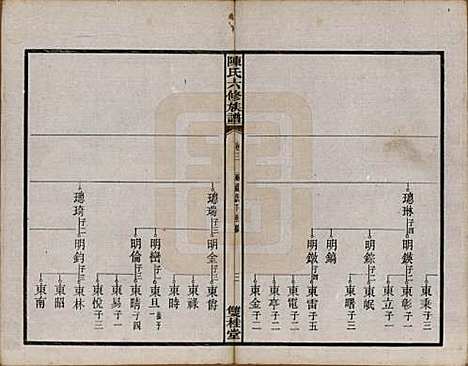 陳氏六修族譜
卷三
雙桂堂
璁琳 子四
明鍈 子三
東秉 子三
東彰 子一
東立 子一
明錝 子二
東岷
東曙 子三
明鎬
明鐓 子四
東雷 子五
東電 子二
東亭 子二
東金 子二
璁瑞 子三
明金 子三
東爵
東祿
東時
明㰖 子一
東旦
明倫 子二
東晴 子四
東易 子一
璁琦 子一
明鈞 子三
東悅 子三
東林
東韶
東南